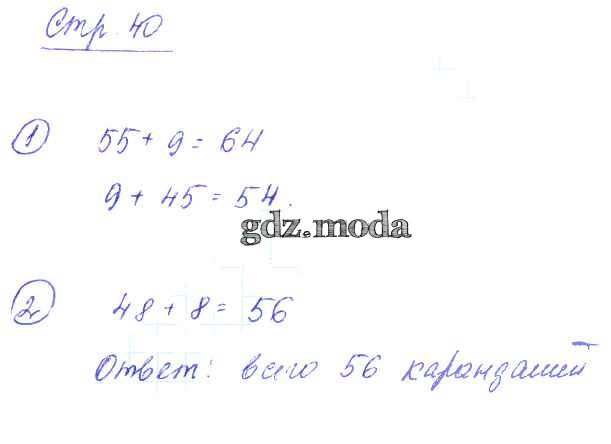 Стр. 40
1 55 + 9 = 64
9 + 45 = 54.
gdz.moda
2 48 + 8 = 56
Ответ: всего 56 карандашей